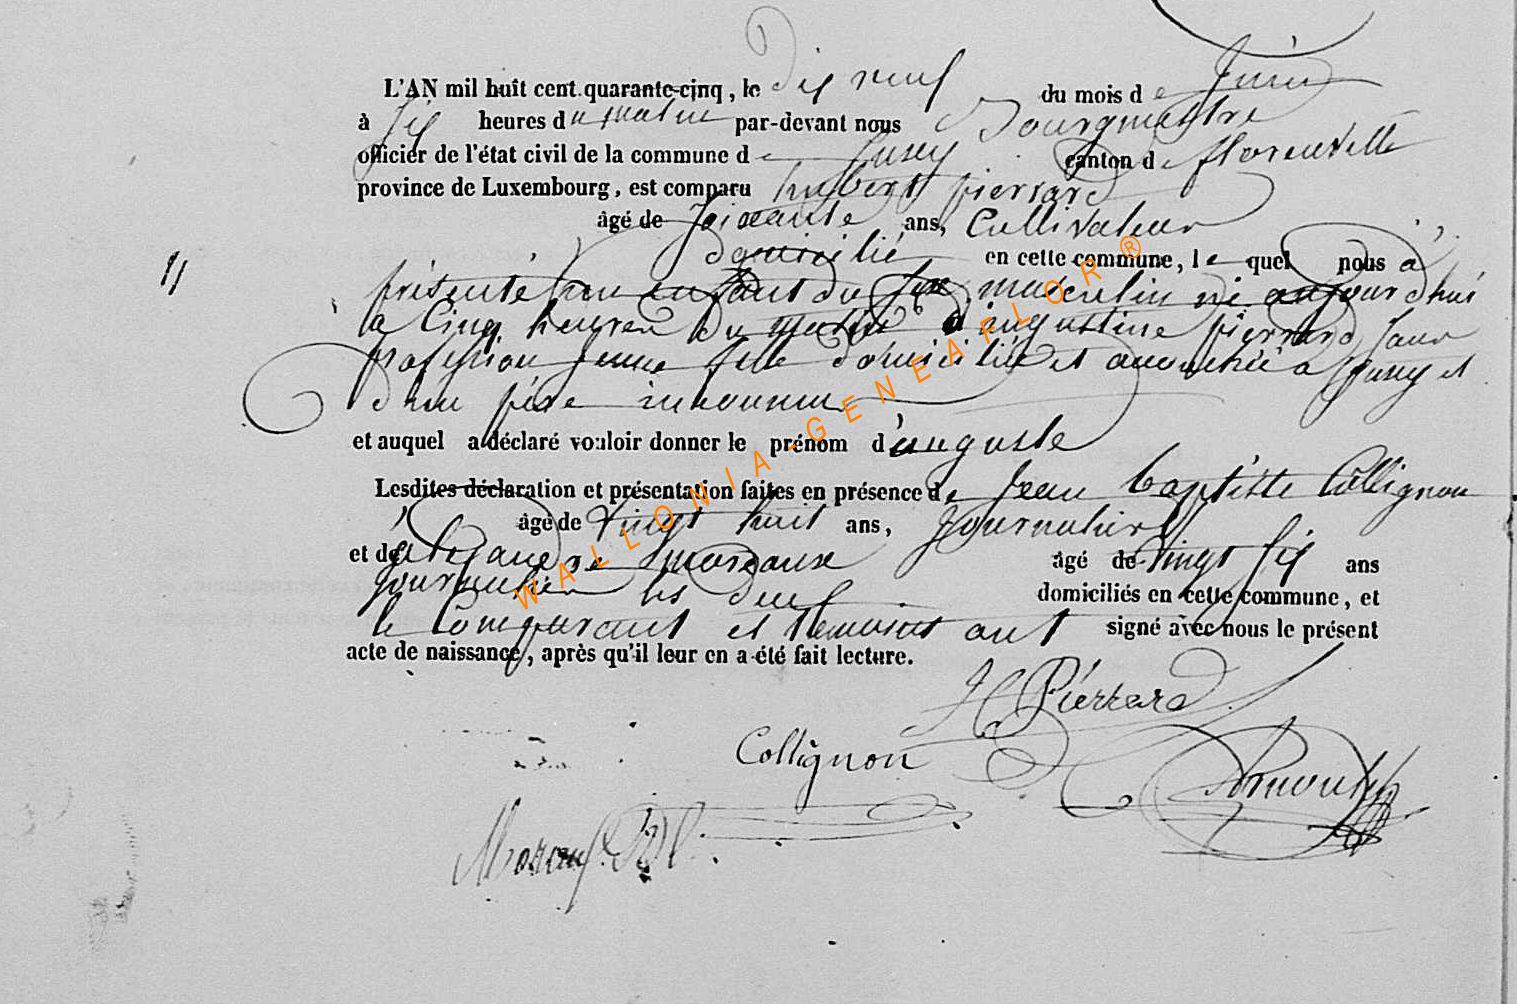 L'AN mil huit cent quarante-cinq, le dix neuf du mois de Juin
à six heures du matin par-devant nous Bourgmestre
officier de l'état civil de la commune de canton de florenville
province de Luxembourg, est comparu hubert pierrard
âgé de soixante ans, Cultivateur
domicilié en cette commune, le quel nous à
11
présenté un enfant du sexe masculin né aujourdhui
a Cinq heures du matin d'augustine pierrard sans
profession jeune fille domiciliée et accouchée a et
d'un père inconnu
et auquel a déclaré vouloir donner le prénom d'auguste
Lesdites déclaration et présentation faites en présence de Jean baptiste Collignon
âgé de vingt huit ans, Journalier
et de alexandre moreaux âgé de vingt six ans
journalier les deux domiciliés en cette commune, et
le Comparant et temoins ont signé avec nous le présent
acte de naissance, après qu'il leur en a été fait lecture.
H Pierrard
Collignon
WALLONIA-GENEAFLOR®